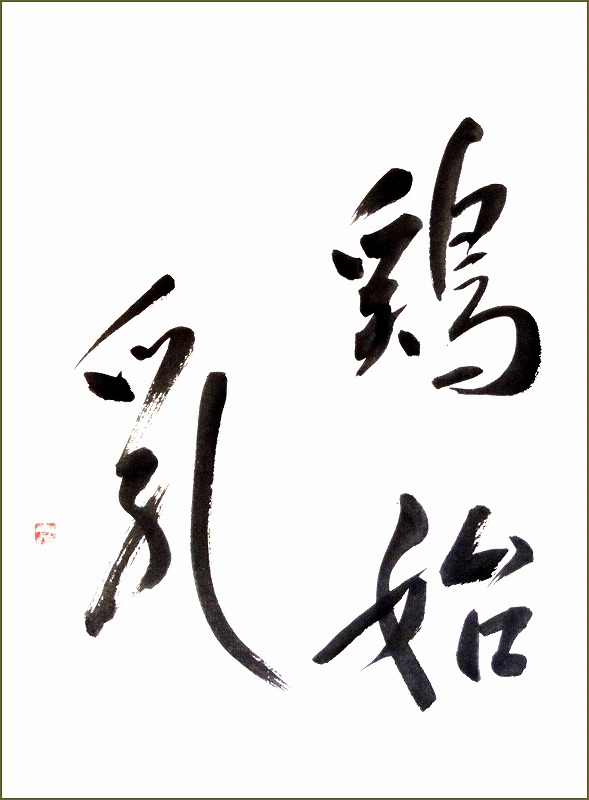 鶏始
乳